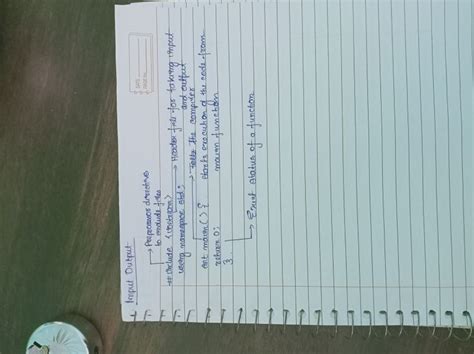 Input Output
→ Preprocessor directives
to include files
# include (iostream) → Header file for taking input
and output
using namespace std; → Tells the computer
int main() { starts execution of the code from
return 0; main function
}
→ Exit status of a function
DATE
PAGE No.